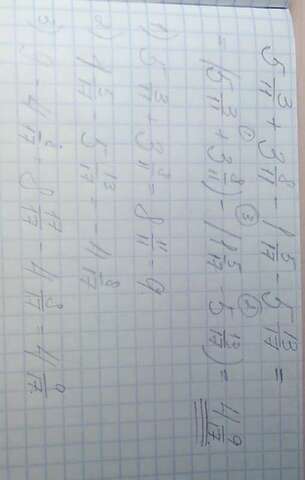 5 3/11 + 3 8/11 - 1 5/17 - 5 13/17 =
① ③ ②
= (5 3/11 + 3 8/11) - (1 5/17 - 5 13/17) = 4 9/17
1) 5 3/11 + 3 8/11 = 8 11/11 = 9
2) 1 5/17 - 5 13/17 = - 4 8/17
3) 9 - 4 8/17 = 8 17/17 - 4 8/17 = 4 9/17